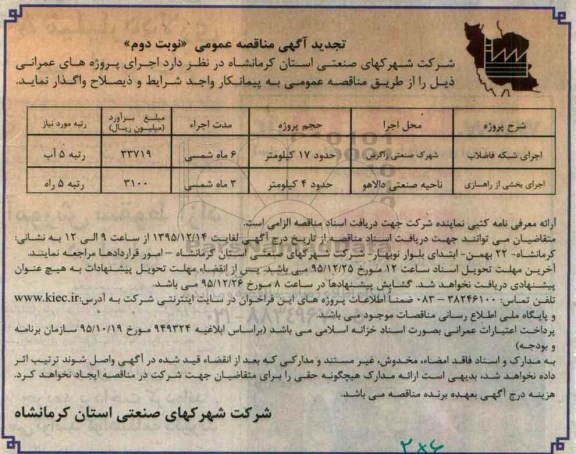 تجدید آگهی مناقصه عمومی «نوبت دوم»
شرکت شهرکهای صنعتی استان کرمانشاه در نظر دارد اجرای پروژه های عمرانی
ذیل را از طریق مناقصه عمومی به پیمانکار واجد شرایط و ذیصلاح واگذار نماید.
شرح پروژه | محل اجرا | حجم پروژه | مدت اجراء | مبلغ برآورد (میلیون ریال) | رتبه مورد نیاز
اجرای شبکه فاضلاب | شهرک صنعتی زاگرس | حدود ۱۷ کیلومتر | ۶ ماه شمسی | ۳۳۷۱۹ | رتبه ۵ آب
اجرای بخشی از راهسازی | ناحیه صنعتی دالاهو | حدود ۴ کیلومتر | ۳ ماه شمسی | ۳۱۰۰ | رتبه ۵ راه
ارائه معرفی نامه کتبی نماینده شرکت جهت دریافت اسناد مناقصه الزامی است.
متقاضیان می توانند جهت دریافت اسناد مناقصه از تاریخ درج آگهی لغایت ۱۳۹۵/۱۲/۱۴ از ساعت ۹ الی ۱۲ به نشانی:
کرمانشاه- ۲۲ بهمن- ابتدای بلوار نوبهار- شرکت شهرکهای صنعتی استان کرمانشاه – امور قراردادها مراجعه نمایند.
آخرین مهلت تحویل اسناد ساعت ۱۲ مورخ ۹۵/۱۲/۲۵ می باشد. پس از انقضاء مهلت تحویل پیشنهادات به هیچ عنوان
پیشنهادی دریافت نخواهد شد. گشایش پیشنهادها در ساعت ۸ مورخ ۹۵/۱۲/۲۶ می باشد.
تلفن تماس: ۳۸۲۴۶۱۰۰ – ۰۸۳ ضمناً اطلاعات پروژه های این فراخوان در سایت اینترنتی شرکت به آدرس: www.kiec.ir
و پایگاه ملی اطلاع رسانی مناقصات موجود می باشد
پرداخت اعتبارات عمرانی بصورت اسناد خزانه اسلامی می باشد (براساس ابلاغیه ۹۴۹۳۲۴ مورخ ۹۵/۱۰/۱۹ سازمان برنامه
و بودجه)
به مدارک و اسناد فاقد امضاء، مخدوش، غیر مستند و مدارکی که بعد از انقضاء قید شده در آگهی واصل شوند ترتیب اثر
داده نخواهد شد، بدیهی است ارائه مدارک هیچگونه حقی را برای متقاضیان جهت شرکت در مناقصه ایجاد نخواهد کرد.
هزینه درج آگهی بعهده برنده مناقصه می باشد.
شرکت شهرکهای صنعتی استان کرمانشاه